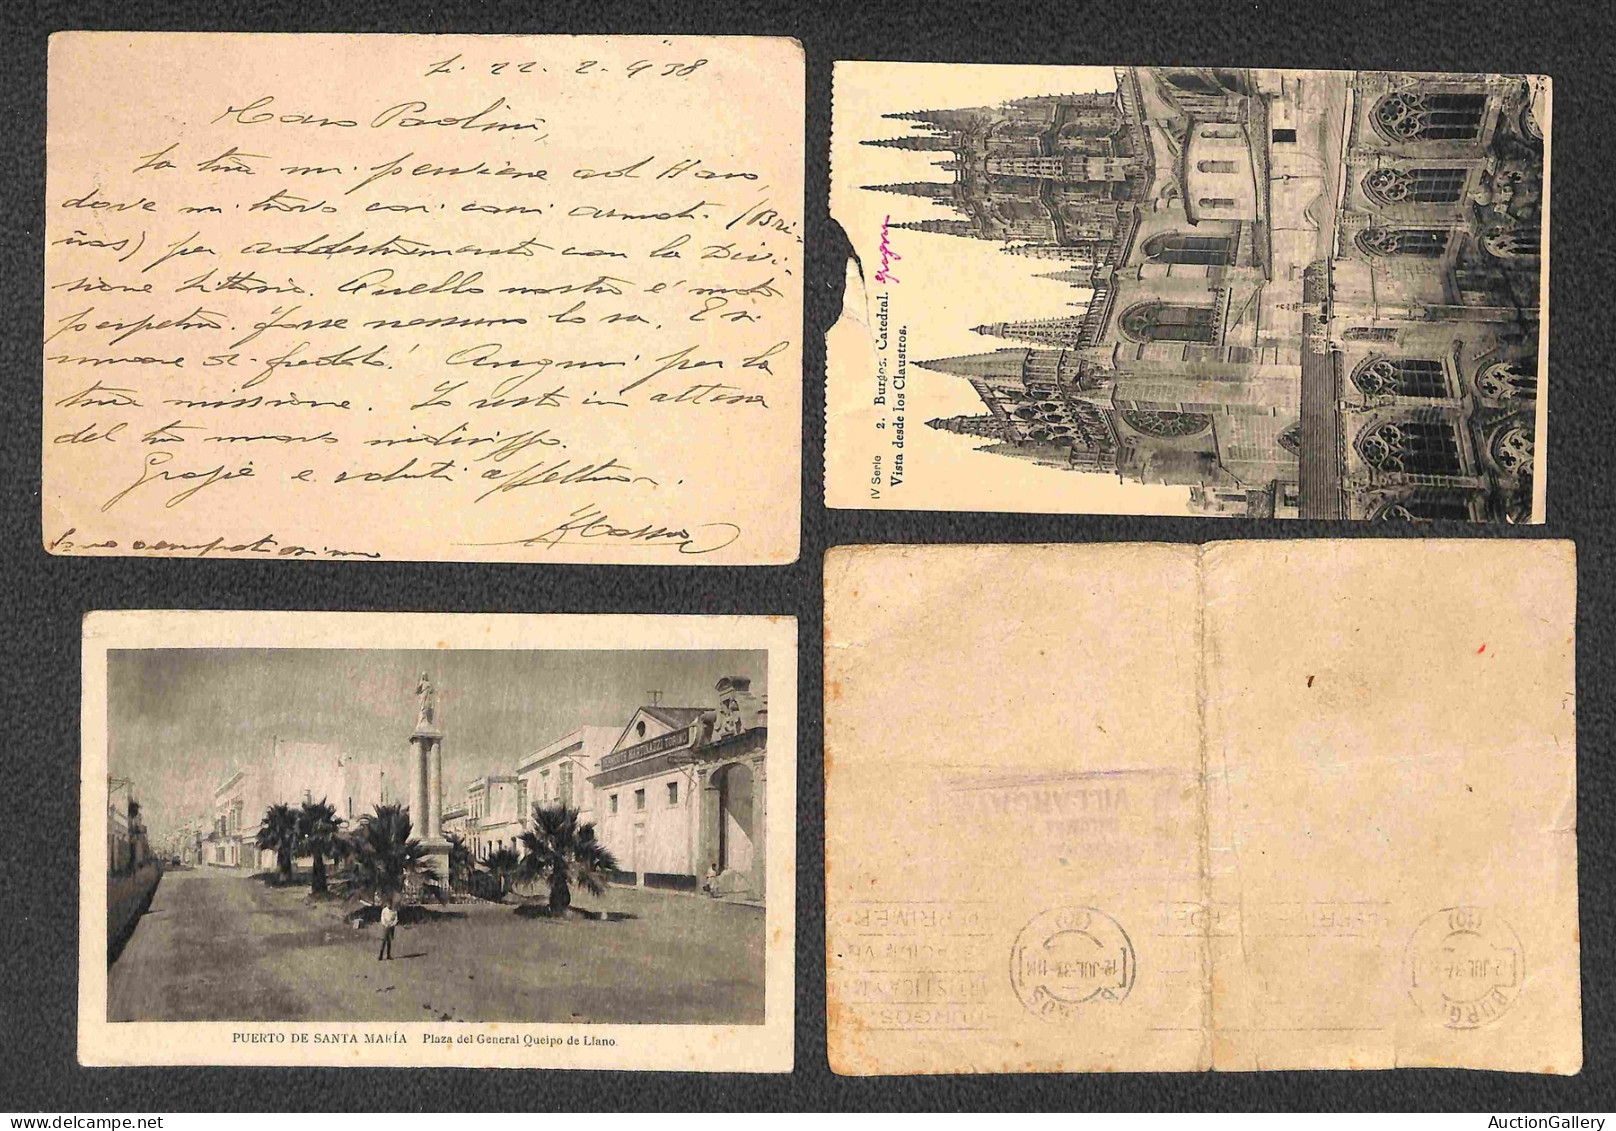 22-2-938
Caro Paolini,
la tua mi perviene ad Haro,
dove mi trovo con i carri armati (Bri-
ñas) per addestramento con la Divi-
sione Littorio. Quello nostro è moto
perpetuo. Forse nessuno lo sa. E si
muore di freddo! Auguri per la
tua missione. Io resto in attesa
del tuo nuovo indirizzo.
Grazie e saluti affettuosi.
IV Serie 2. Burgos. Catedral.
Vista desde los Claustros.
VERMOUTH MARTINAZZI TORINO
PUERTO DE SANTA MARÍA Plaza del General Queipo de Llano.
PRIMER
BURGOS
12-JUL-38-11M
BURGOS
12-JUL-3
AuctionGallery